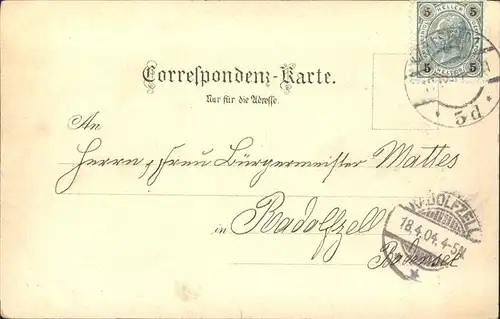 5 HELLER 5
5 HELLER 5
Correspondenz-Karte.
Nur für die Adresse.
3d
An
Herrn & Frau Bürgermeister Mattes
in Radolfzell
RADOLFZELL
18.4.04. 4-5N.
Bodensee